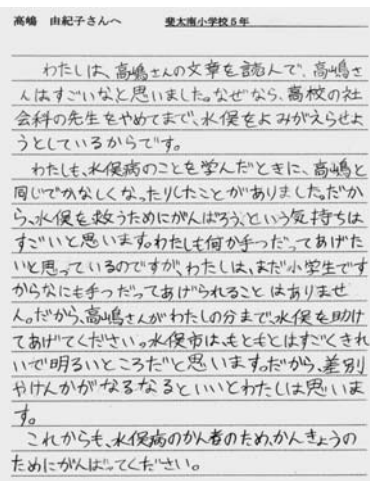 高嶋　由紀子さんへ　斐太南小学校５年
わたしは、高嶋さんの文章を読んで、高嶋さ
んはすごいなと思いました。なぜなら、高校の社
会科の先生をやめてまで、水俣をよみがえらせよ
うとしているからです。
わたしも、水俣病のことを学んだときに、高嶋と
同じでかなしくなったりしたことがありました。だか
ら、水俣を救うためにがんばろう、という気持ちは
すごいと思います。わたしも何か手つだってあげた
いと思っているのですが、わたしは、まだ小学生です
からなにも手つだってあげられることはありませ
ん。だから、高嶋さんがわたしの分まで、水俣を助け
てあげてください。水俣市は、もともとはすごくきれ
いで明るいところだと思います。だから、差別
やけんかがなるなるといいとわたしは思いま
す。
これからも、水俣病のかん者のため、かんきょうの
ためにがんばってください。